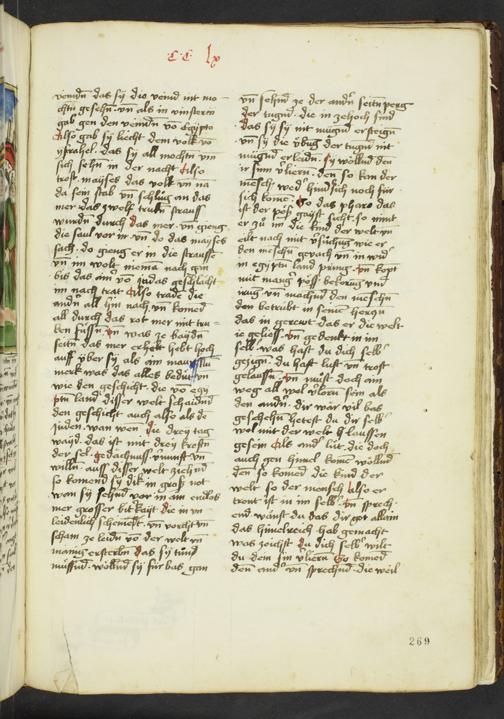 CC lx
venidn das sy die veind nit mo-
chtn gesehn vn als in vinstern
gab gen den veindn vo Egypto
Also gab sy liecht dem volk vo
ysrahel das sy all mochtn vn
sich sehn in der nacht Also
trost mayses das volk vn na
da sein stab vn schlug an das
mer das zwelf trukn strauss
wurdn durch das mer vn gieng
die saul vor in vn do das mayses
sach do gieng er in die strasse
vn im wolt niema nach gan
bis das ain vo Judas geschlächt
im nach trat Also trate die
andn all hin nach vn komed
all durch das rot mer mit tru-
ken füssn vn was ze baydn
seitn das mer erhebt hoch
auff yber sy als ain maur Nu
merk was das alles bedüt vn
wie den geschicht die vo egy
ptn land disser welt schaidnd
den geschicht auch also als de
Juden wan wen die drey tag
wayd das ist mit drey kreftn
der sel gedächnuss vnunst vn
willn auss disser welt ziehnd
so komend sy dik in gross not
wan sy sehnd vor in ain endlos
mer grosser bitkayt die in vn
leidenlich scheinedt vn vorcht vn
scham ze leidn vo der welt vn
manig ersterbn das sy tund
müssnd wöllnd sy für bas gan
vn sehnd ze der andn seitn perg
der tugnd die in zehoch sind
das sy sy nit mügnd ersteign
vn sy die vbug der tugnt nit
mügnd erleidn sy wöllnd den
ir sinn vliern den so kan der
mensch wed hindsich noch für
sich kome So das pharo das
ist der pöss gayst sicht so nimt
er zu im die kind der welt vn
eilt nach mit vsüchug wie er
den menschn gevach vn in wid
in egyptn land pring vn kopt
mit mang poss bekorug vnd
irug vn machnd den menschn
den betrubt in seine hertzn
das in gerewt das er die welt
ie geliess vn gedenkt in im
selb was hast du dich selb
gezign du hast lust vn trost
gelaussn vn must doch ain
weg all wol vlorn sein als
den andn dir wär vil bas
geschehn hetest du dir selb
wol mit der welt glaussn
gesein Als and lüt die doch
auch gen himel kome wöllnd
den so komed die kind der
welt so der mensch Also er
trent ist in im selb vn sprech
end wänst du das dir got allain
das himelreich hab gemacht
was zeichst du dich selb wilt
du den im vliern So komed
den and vn sprechnd die weil
269